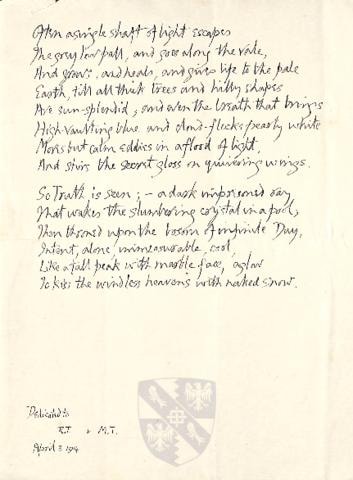 Often a single shaft of light escapes
The grey low pall, and goes along the vale,
And grows, and heals, and gives life to the pale
Earth, till all thick trees and hilly shapes
Are sun-splendid; and even the breath that brings
High-vaulting blue and cloud-flecks pearly white
Mows but calm eddies in a flood of light,
And stirs the secret gloss on quivering wings.
So Truth is seen; - a dark imprisoned ray
That wakes the slumbering crystal in a pool,
Then throned upon the bosom of infinite Day,
Intent, alone, immeasurable, cool,
Like a tall peak with marble face, aglow
To kiss the windless heavens with naked snow.
Dedicated to
R.T. & M.T.
April 3 1914